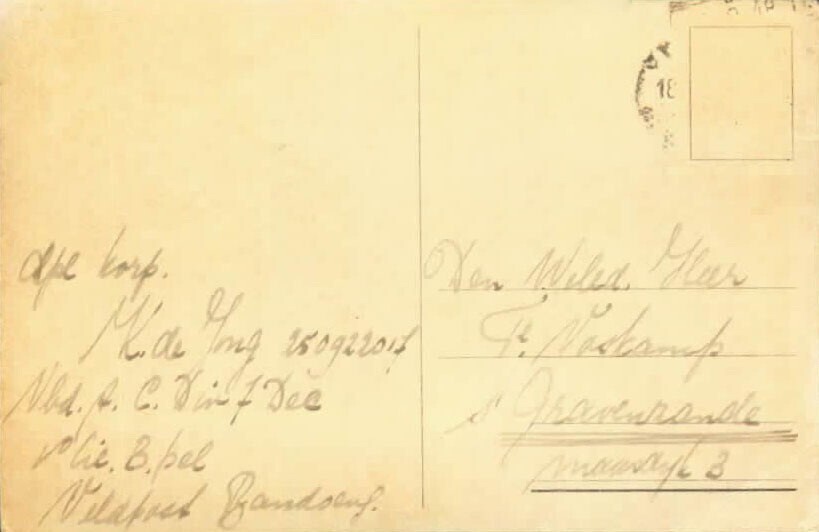 dpl korp.
K. de Jong 250922017
Vbd. A. C. Div 7 Dec
Cie. B. pel
Veldpost Bandoeng.
18
Den Weled. Heer
Voskamp
s' Gravenzande
maasdijk 3